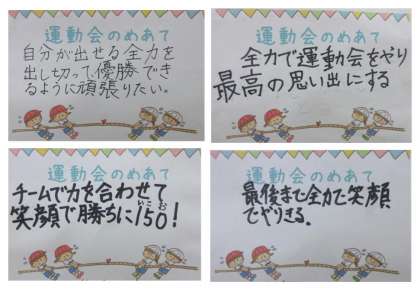 運動会のめあて
自分が出せる全力を
出し切って、優勝でき
るように頑張りたい。
運動会のめあて
全力で運動会をやり
最高の思い出にする
運動会のめあて
チームで力を合わせて
笑顔で勝ちに150!
いこお
運動会のめあて
最後まで全力で笑顔
でやりきる。